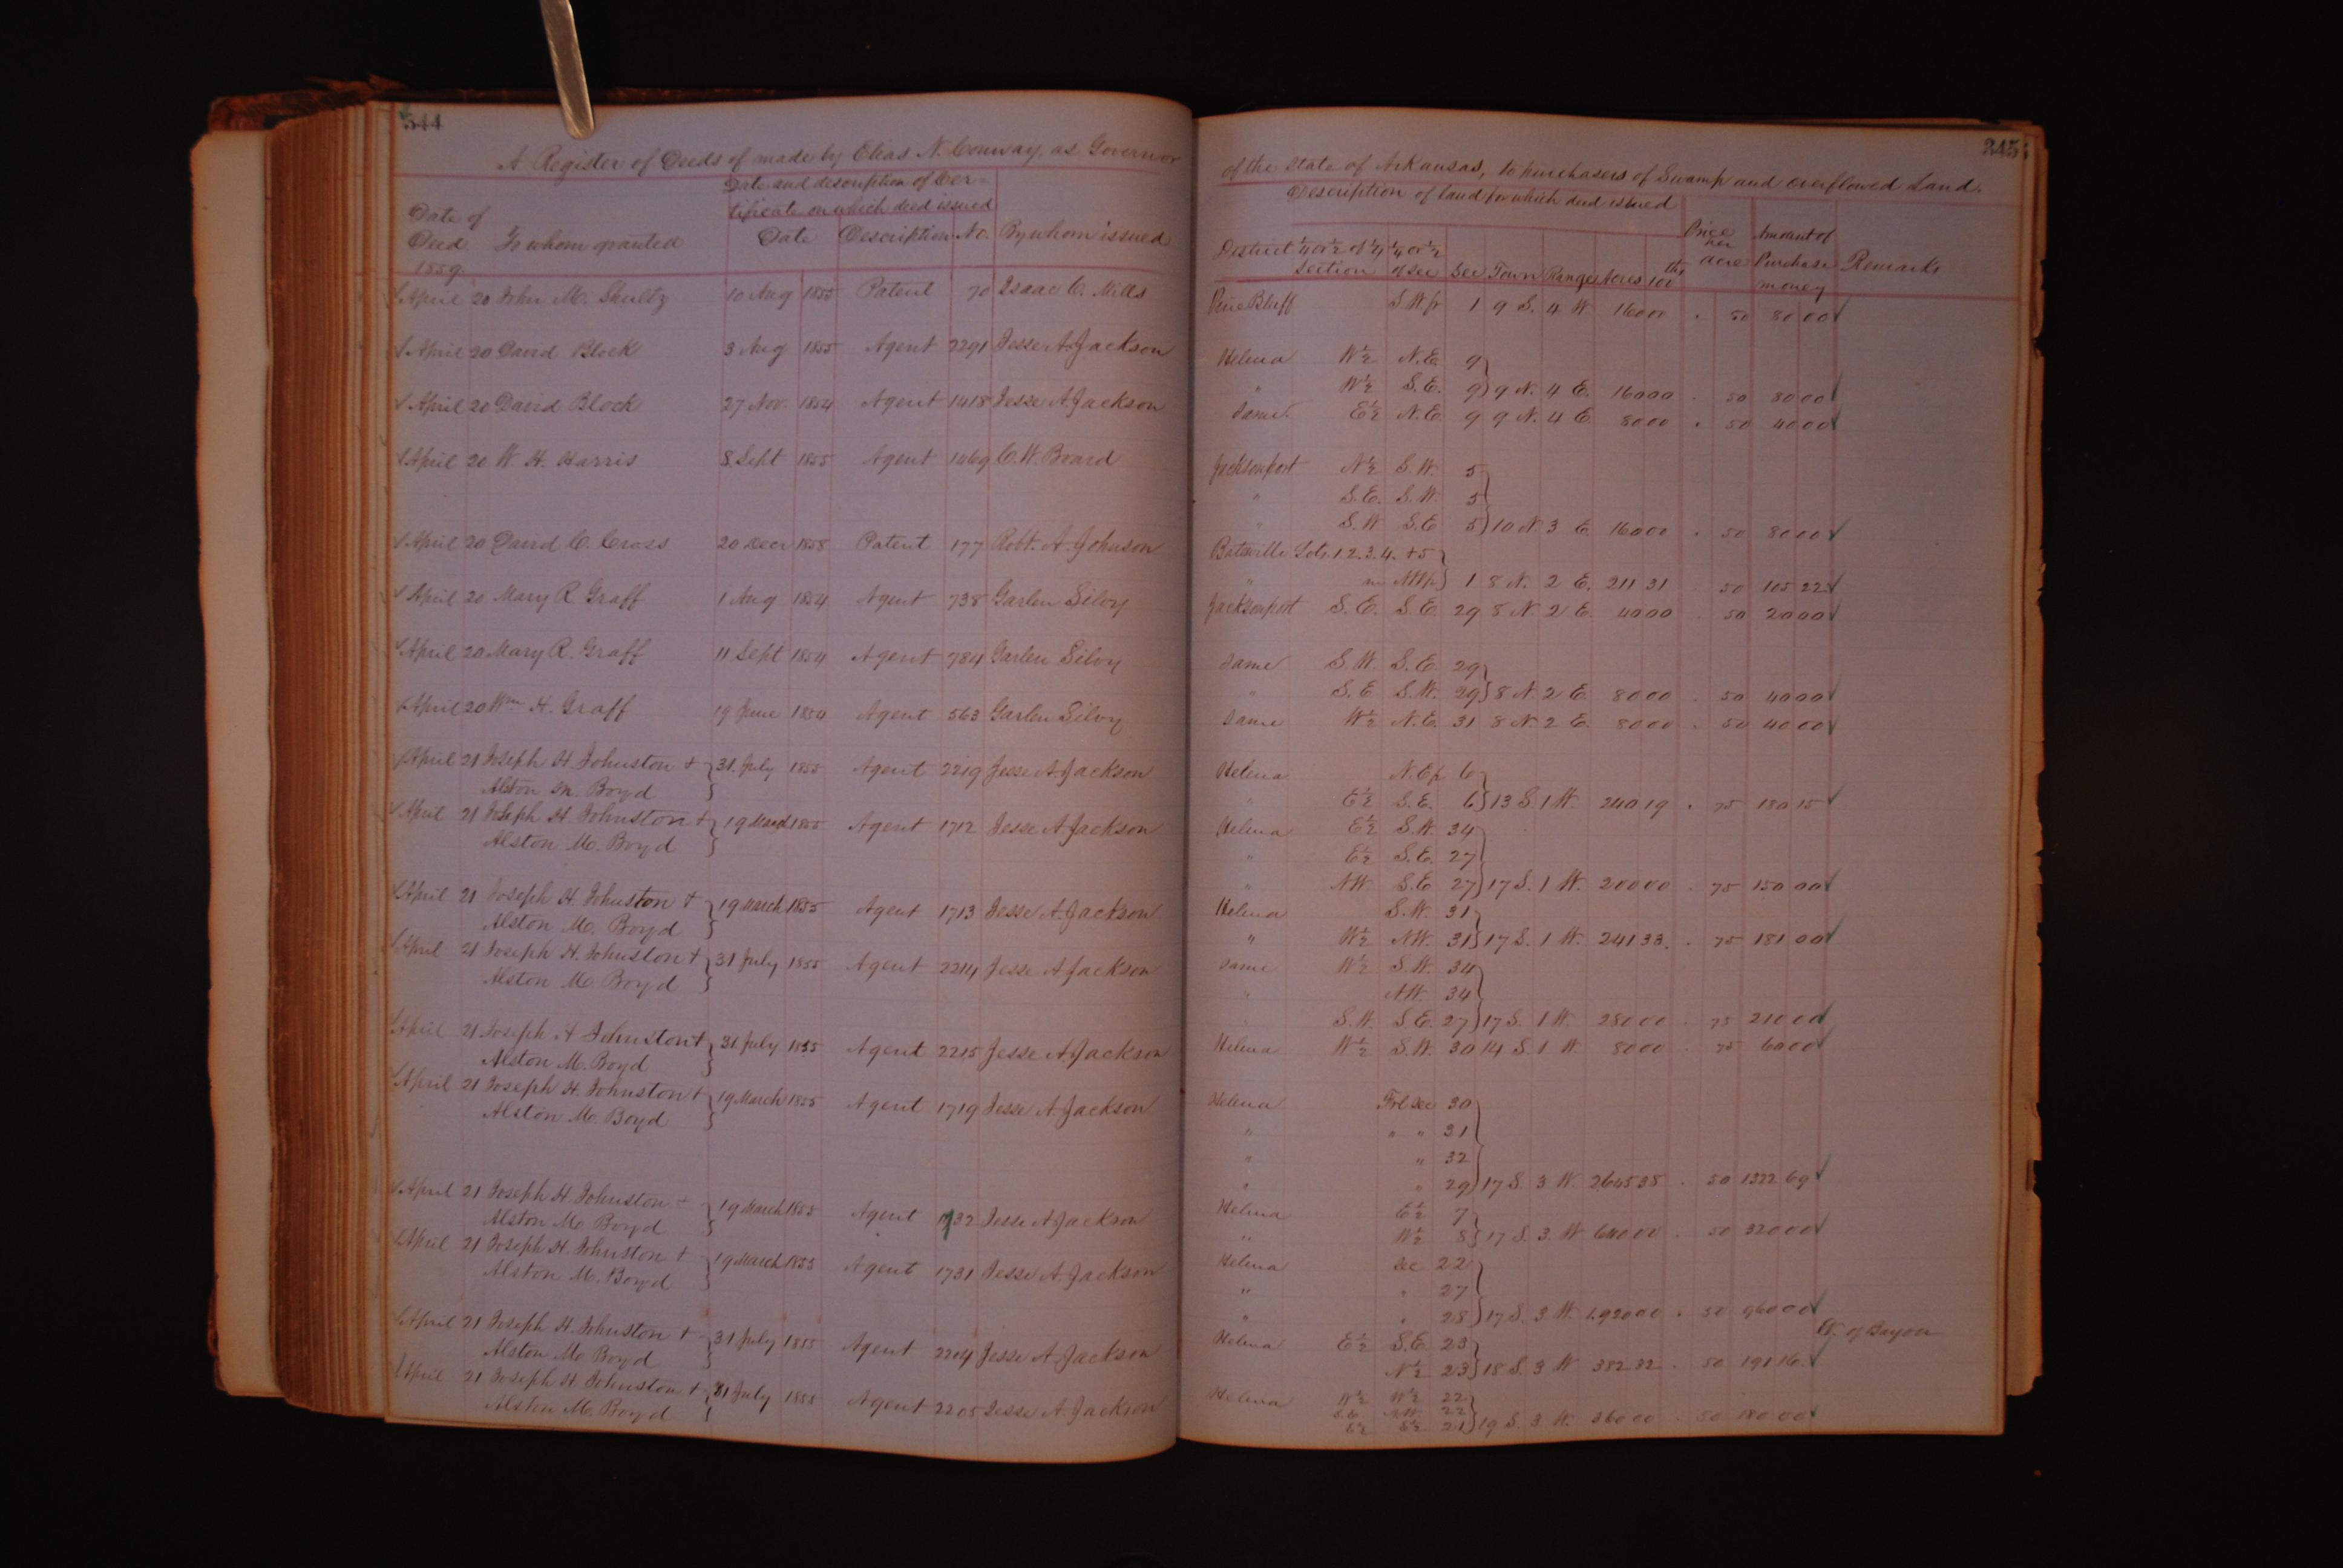 344
A Register of Deeds of made by Elias N. Conway, as Governor
Date and description of Cer-
tificate on which deed issued
Date of Deed To whom granted Date Description No. By whom issued
1859.
April 20 John M. Shultz 10 Aug 1855 Patent 70 Isaac C. Mills
April 20 David Block 3 Aug 1855 Agent 2291 Jesse A. Jackson
April 20 David Block 27 Nov. 1854 Agent 1418 Jesse A. Jackson
April 20 W. H. Harris 8 Sept 1855 Agent 1469 C. W. Board
April 20 David C. Cross 20 Decr 1858 Patent 177 Robt. A. Johnson
April 20 Mary R Graff 1 Aug 1854 Agent 738 Garlen Silvy
April 20 Mary R. Graff 11 Sept 1854 Agent 784 Garlen Silvy
April 20 Wm H. Graff 19 June 1854 Agent 563 Garlen Silvy
April 21 Joseph H Johnston + 31. July 1855 Agent 2219 Jesse A Jackson
Alston M. Boyd
April 21 Joseph H. Johnston + 19 March 1855 Agent 1712 Jesse A Jackson
Alston M. Boyd
April 21 Joseph H. Johnston + 19 March 1855 Agent 1713 Jesse A. Jackson
Alston M. Boyd
April 21 Joseph H. Johnston + 31 July 1855 Agent 2214 Jesse A Jackson
Alston M. Boyd
April 21 Joseph H Johnston + 31 July 1855 Agent 2215 Jesse A. Jackson
Alston M. Boyd
April 21 Joseph H. Johnston + 19 March 1855 Agent 1719 Jesse A. Jackson
Alston M. Boyd
April 21 Joseph H. Johnston + 19 March 1855 Agent 1732 Jesse A Jackson
Alston M. Boyd
April 21 Joseph H. Johnston + 19 March 1855 Agent 1731 Jesse A. Jackson
Alston M. Boyd
April 21 Joseph H. Johnston + 31 July 1855 Agent 2204 Jesse A. Jackson
Alston M. Boyd
April 21 Joseph H. Johnston + 31 July 1855 Agent 2205 Jesse A. Jackson
Alston M. Boyd
345
of the State of Arkansas, to purchasers of Swamp and overflowed Land.
Description of land for which deed issued
District ¼ or ½ of ¼ Section ¼ or ½ of Sec Sec Town Range Acres 100ths Price per acre Amount of Purchase money Remarks
Pine Bluff S.W. fr 1 9 S. 4 W 160 00 . 50 80 00
Helena W½ N.E. 9
" W½ S.E. 9 9 N. 4 E. 160 00 . 50 80 00
Same E½ N.E 9 9 N. 4 E 80 00 . 50 40 00
Jacksonport N½ S.W. 5
" S.E. S.W. 5
" S.W S.E 5 10 N. 3 E 160 00 . 50 80 00
Batesville Lots 1. 2. 3. 4. + 5
" in NW fr 1 8 N. 2 E. 211 31 . 50 105 22
Jacksonport S.E. S.E. 29 8 N. 2 E. 40 00 . 50 20 00
Same S.W S.E. 29
" S.E S.W. 29 8 N. 2 E. 80 00 . 50 40 00
Same W½ N.E. 31 8 N. 2 E. 80 00 . 50 40 00
Helena N.E fr 6
" E½ S.E. 6 13 S. 1 W. 240 19 . 75 180 15
Helena E½ S.W. 34
" E½ S.E. 27
" NW S.E 27 17 S. 1 W. 200 00 . 75 150 00
Helena S.W. 31
" W½ NW. 31 17 S. 1 W. 241 33 . 75 181 00
Same W½ S.W. 34
" NW. 34
S.W. S.E. 27 17 S. 1 W. 280 00 . 75 210 00
Helena W½ S.W. 30 14 S. 1 W. 80 00 . 75 60 00
Helena Frl Sec 30
" " " 31
" " 32
" " 29 17 S. 3 W. 2645 38 . 50 1322 69
Helena E½ 7
" W½ 8 17 S. 3. W 640 00 . 50 320 00
Helena Sec 22
" " 27
" " 28 17 S. 3 W. 1.920 00 . 50 960 00
Helena E½ S.E. 23 W. of Bayou
N½ 23 18 S. 3 W 382 32 . 50 191 16
Helena W½ W½ 22
S.E NW. 22
E½ E½ 21 19 S. 3 W. 360 00 . 50 180 00